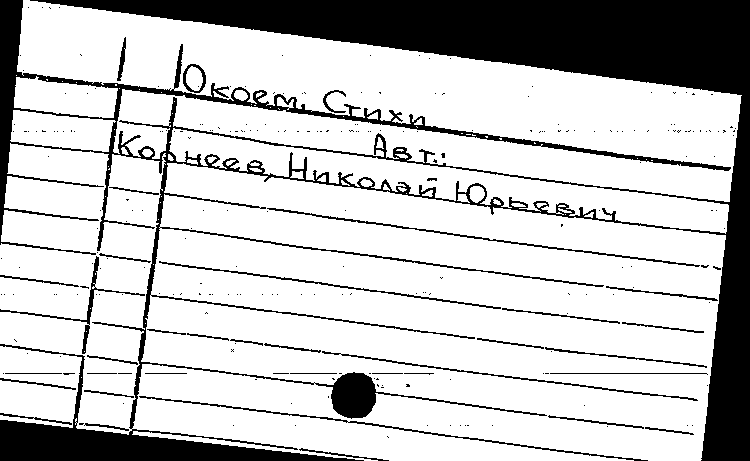 Окоем. Стихи
Авт.:
Корнеев, Николай Юрьевич